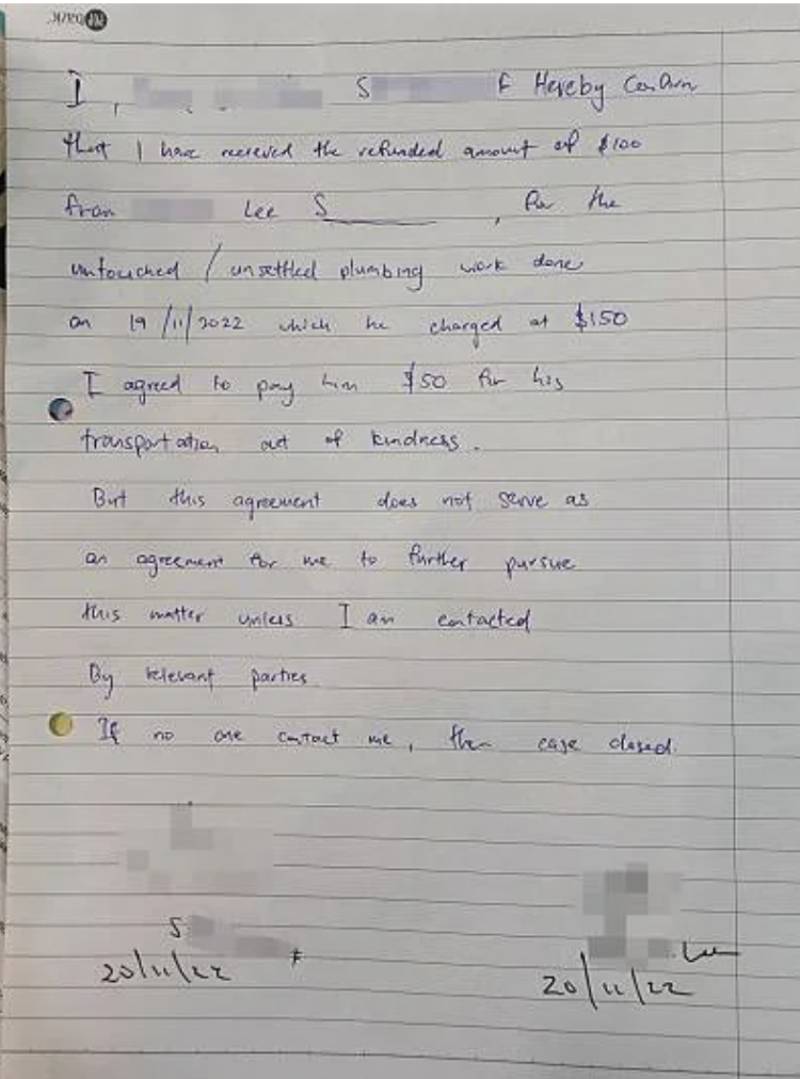 I, S F Hereby Confirm
that I have recieved the refunded amount of $100
from Lee S , for the
untouched / unsettled plumbing work done
on 19/11/2022 which he charged at $150
I agreed to pay him $50 for his
transportation out of kindness.
But this agreement does not serve as
an agreement for me to further pursue
this matter unless I am contacted
By relevant parties
If no one contact me, then case closed.
S F
20/11/22
Lee
20/11/22